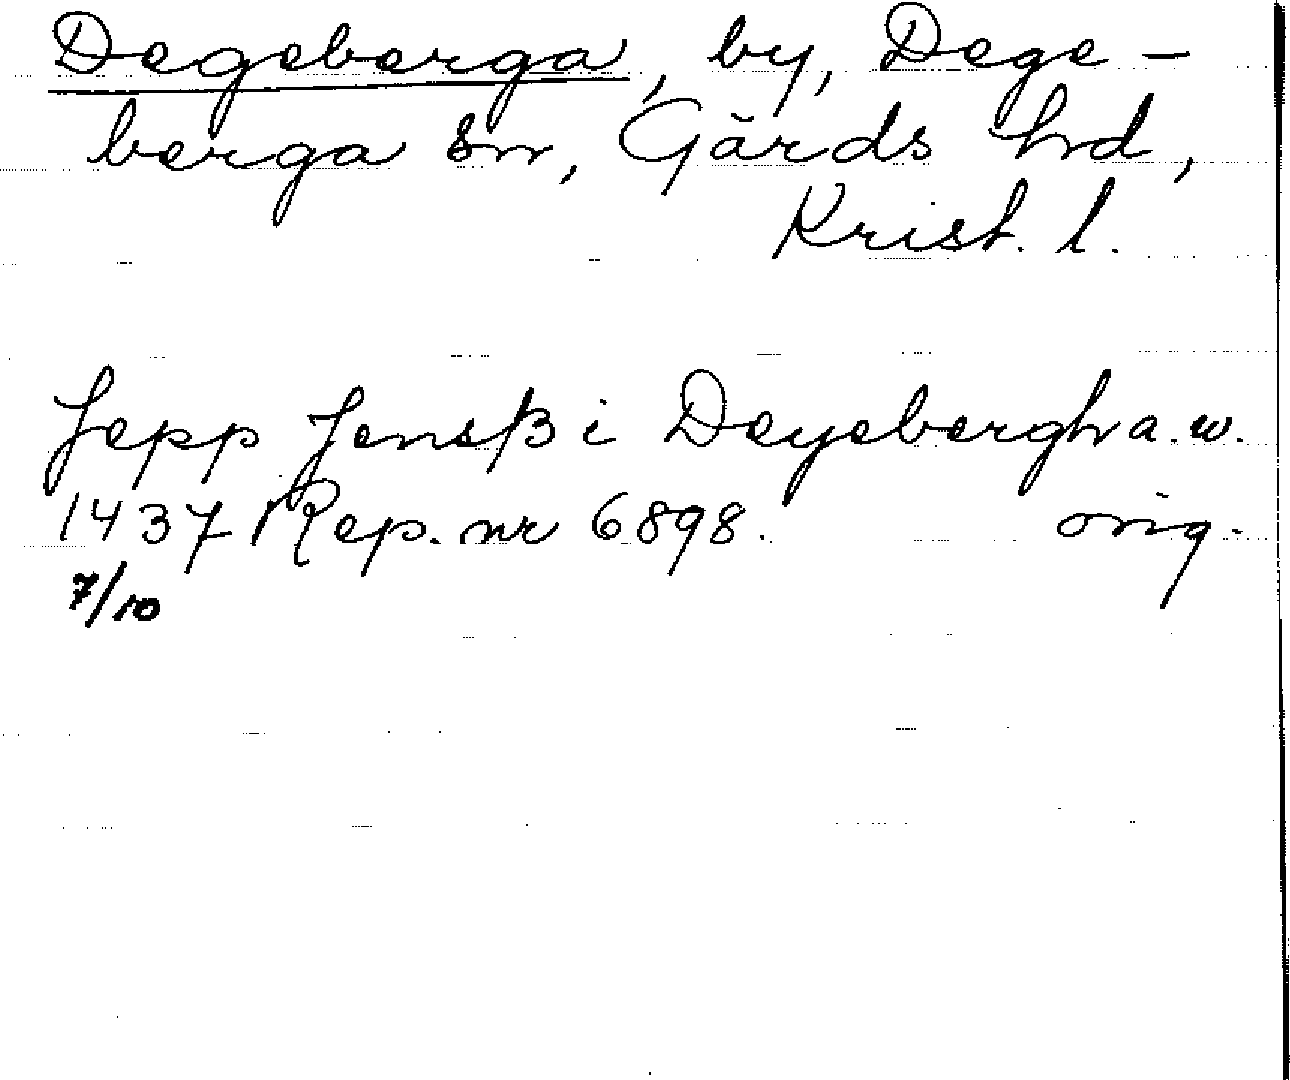 Degeberga, by, Dege-
berga sn, Gärds hd,
Krist. l.
Jepp Jensß i Deyebergha. w.
1437 Rep. nr 6898. orig.
7/10